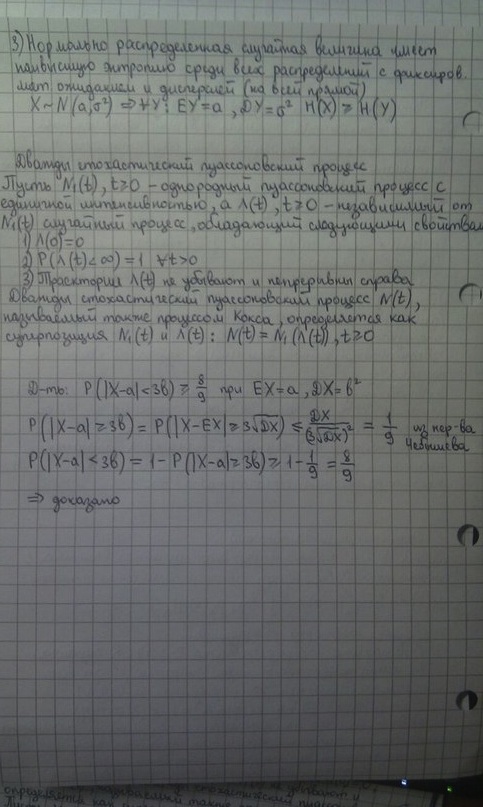 3) Нормально распределенная случайная величина имеет
наивысшую энтропию среди всех распределений с фиксиров.
мат. ожиданием и дисперсией (на всей прямой)
X~N(a,σ²) ⇒ ∀Y: EY=a, DY=σ² H(X) ≥ H(Y)
Дважды стохастический пуассоновский процесс
Пусть N₁(t), t≥0 – однородный пуассоновский процесс с
единичной интенсивностью, а Λ(t), t≥0 – независимый от
N₁(t) случайный процесс, обладающий следующими свойствам
1) Λ(0)=0
2) P(Λ(t)<∞)=1 ∀t>0
3) Траектории Λ(t) не убывают и непрерывны справа
Дважды стохастический пуассоновский процесс N(t),
называемый также процессом Кокса, определяется как
суперпозиция N₁(t) и Λ(t): N(t)=N₁(Λ(t)), t≥0
Д-ть: P(|X-a|<3σ) ≥ 8/9 при EX=a, DX=σ²
P(|X-a|≥3σ) = P(|X-EX|≥3√DX) ≤ DX/(3√DX)² = 1/9 из нер-ва
Чебышева
P(|X-a|<3σ) = 1-P(|X-a|≥3σ) ≥ 1-1/9 = 8/9
⇒ доказано